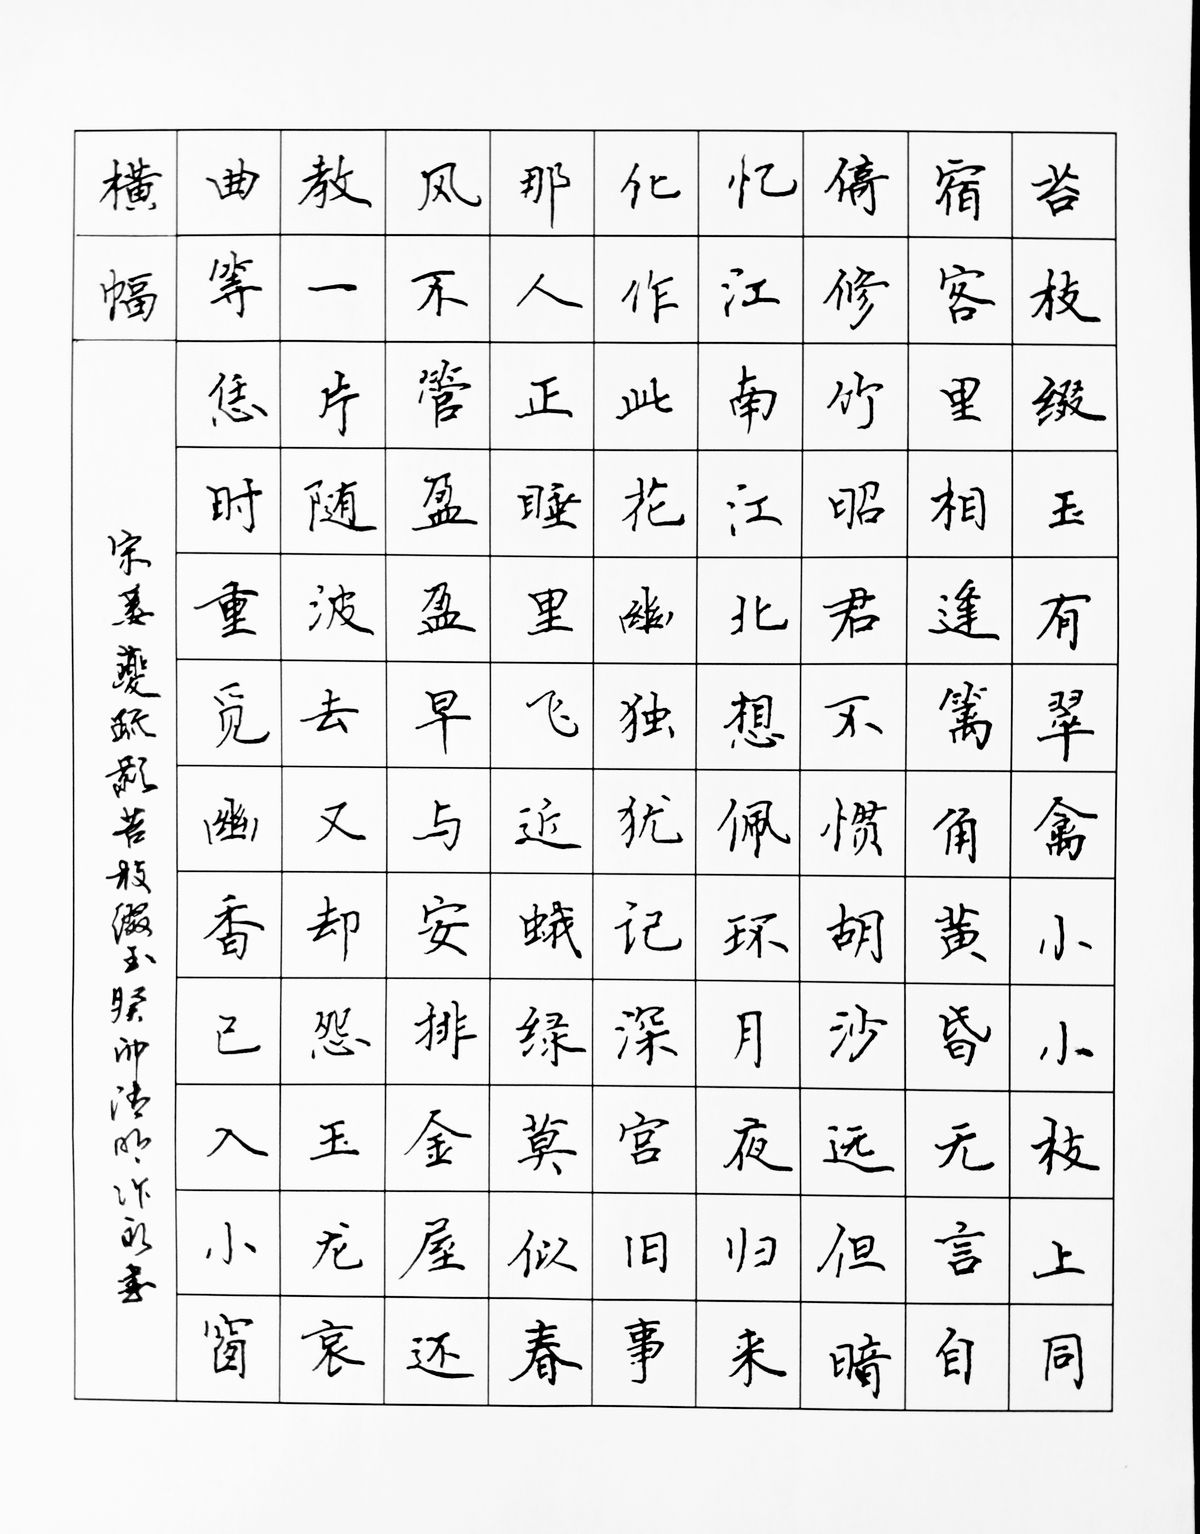 苔枝缀玉有翠禽小小枝上同
宿客里相逢篱角黄昏无言自
倚修竹昭君不惯胡沙远但暗
忆江南江北想佩环月夜归来
化作此花幽独犹记深宫旧事
那人正睡里飞近蛾绿莫似春
风不管盈盈早与安排金屋还
教一片随波去又却怨玉龙哀
曲等恁时重觅幽香已入小窗
横幅
宋姜夔疏影苔枝缀玉癸卯清明